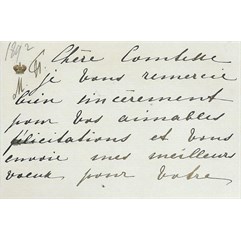 1892
Chère Comtesse
je vous remercie
bien sincèrement
pour vos aimables
félicitations et vous
envoie mes meilleurs
voeux pour votre